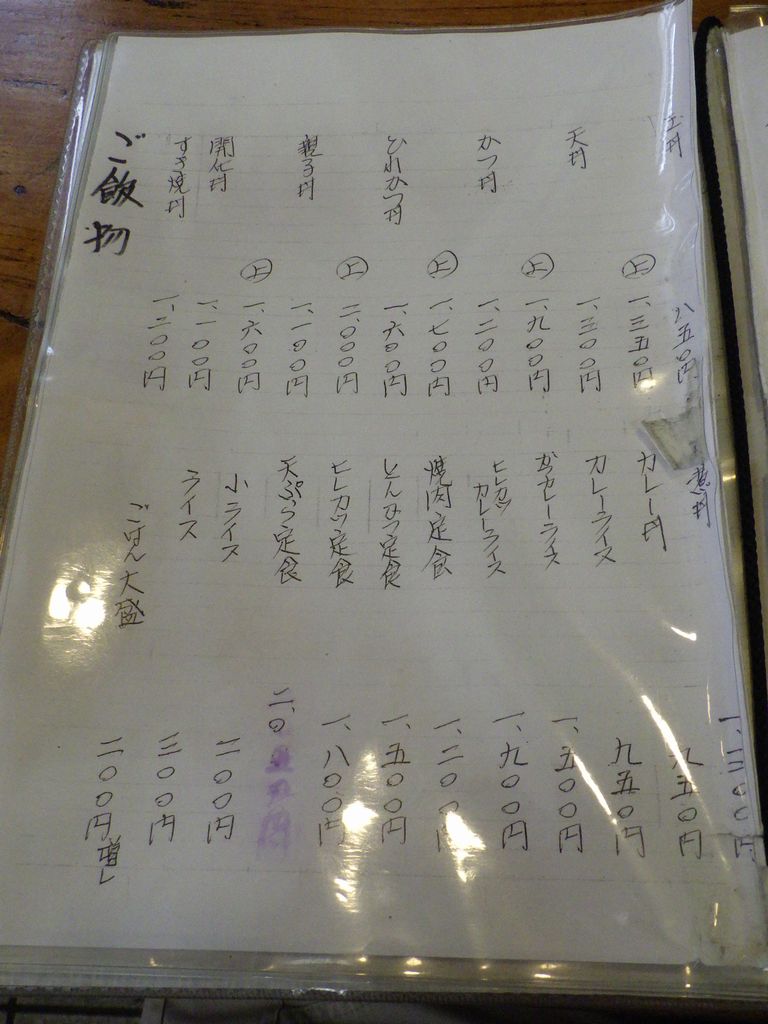 玉丼 八五〇円
㊤ 一、三五〇円
天丼 一、三〇〇円
㊤ 一、九〇〇円
かつ丼 一、二〇〇円
㊤ 一、七〇〇円
ひれかつ丼 一、六〇〇円
㊤ 二、〇〇〇円
親子丼 一、一〇〇円
㊤ 一、六〇〇円
開化丼 一、一〇〇円
すき焼丼 一、二〇〇円
ご飯物
カレー丼 九五〇円
カレーライス 九五〇円
カツカレーライス 一、五〇〇円
ヒレカツカレーライス 一、九〇〇円
焼肉定食 一、二〇〇円
とんかつ定食 一、五〇〇円
ヒレカツ定食 一、八〇〇円
天ぷら定食
小ライス 二〇〇円
ライス 三〇〇円
ごはん大盛 二〇〇円増し